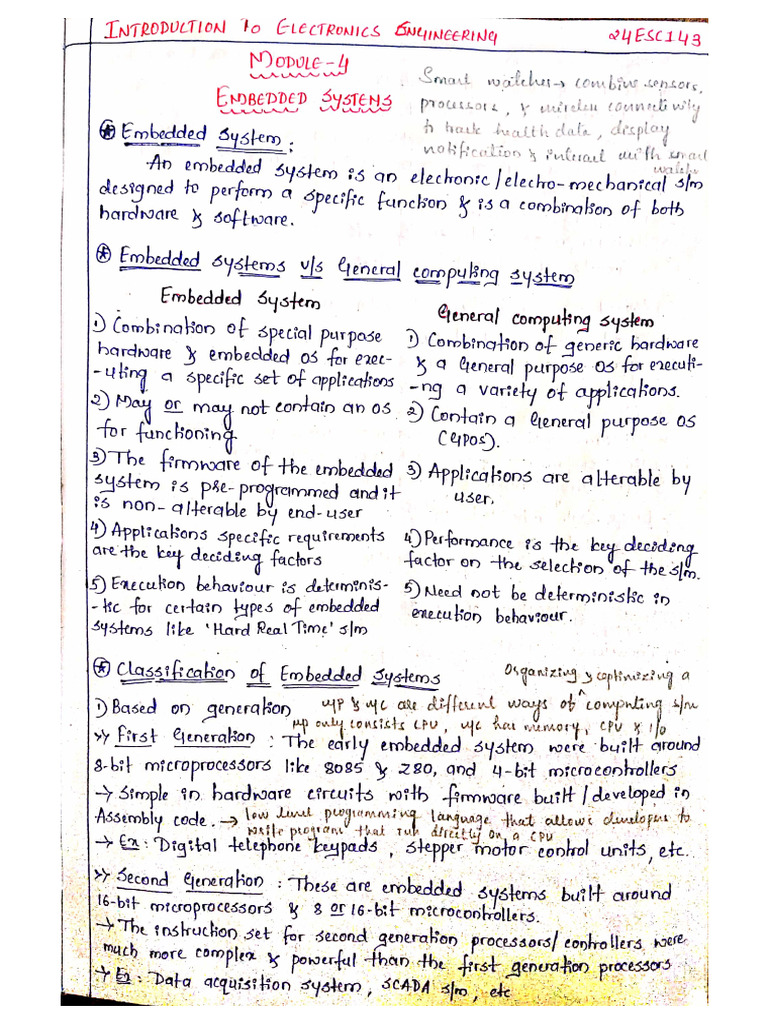 INTRODUCTION to ELECTRONICS ENGINEERING 24ESC143
MODULE-4
EMBEDDED SYSTEMS
Smart watches → combine sensors,
processors, & wireless connectivity
to track health data, display
notification & interact with smart
watches
⊛ Embedded System :
An embedded system is an electronic/electro-mechanical s/m
designed to perform a specific function & is a combination of both
hardware & software.
⊛ Embedded systems v/s General computing system
Embedded System
1) Combination of special purpose
hardware & embedded os for exec-
-uting a specific set of applications
2) May or may not contain an os
for functioning
3) The firmware of the embedded
system is pre-programmed and it
is non-alterable by end-user
4) Applications specific requirements
are the key deciding factors
5) Execution behaviour is determinis-
-tic for certain types of embedded
systems like 'Hard Real Time' s/m
General computing system
1) Combination of generic hardware
& a General purpose os for executi-
-ng a variety of applications.
2) Contain a General purpose os
(GPOS).
3) Applications are alterable by
user.
4) Performance is the key deciding
factor on the selection of the s/m.
5) Need not be deterministic in
execution behaviour.
⊛ Classification of Embedded Systems
Organizing & optimizing a
1) Based on generation μP & μC are different ways of ^ computing s/m
μp only consists CPU, μC has memory, CPU & I/O
>> First Generation : The early embedded system were built around
8-bit microprocessors like 8085 & Z80, and 4-bit microcontrollers
→ Simple in hardware circuits with firmware built/developed in
Assembly code. → low level programming language that allows developers to
write program that run directly on a CPU
→ Ex: Digital telephone keypads, stepper motor control units, etc.
>> Second Generation : These are embedded systems built around
16-bit microprocessors & 8 or 16-bit microcontrollers.
→ The instruction set for second generation processors/controllers were
much more complex & powerful than the first generation processors
→ Ex: Data acquisition system, SCADA s/m, etc